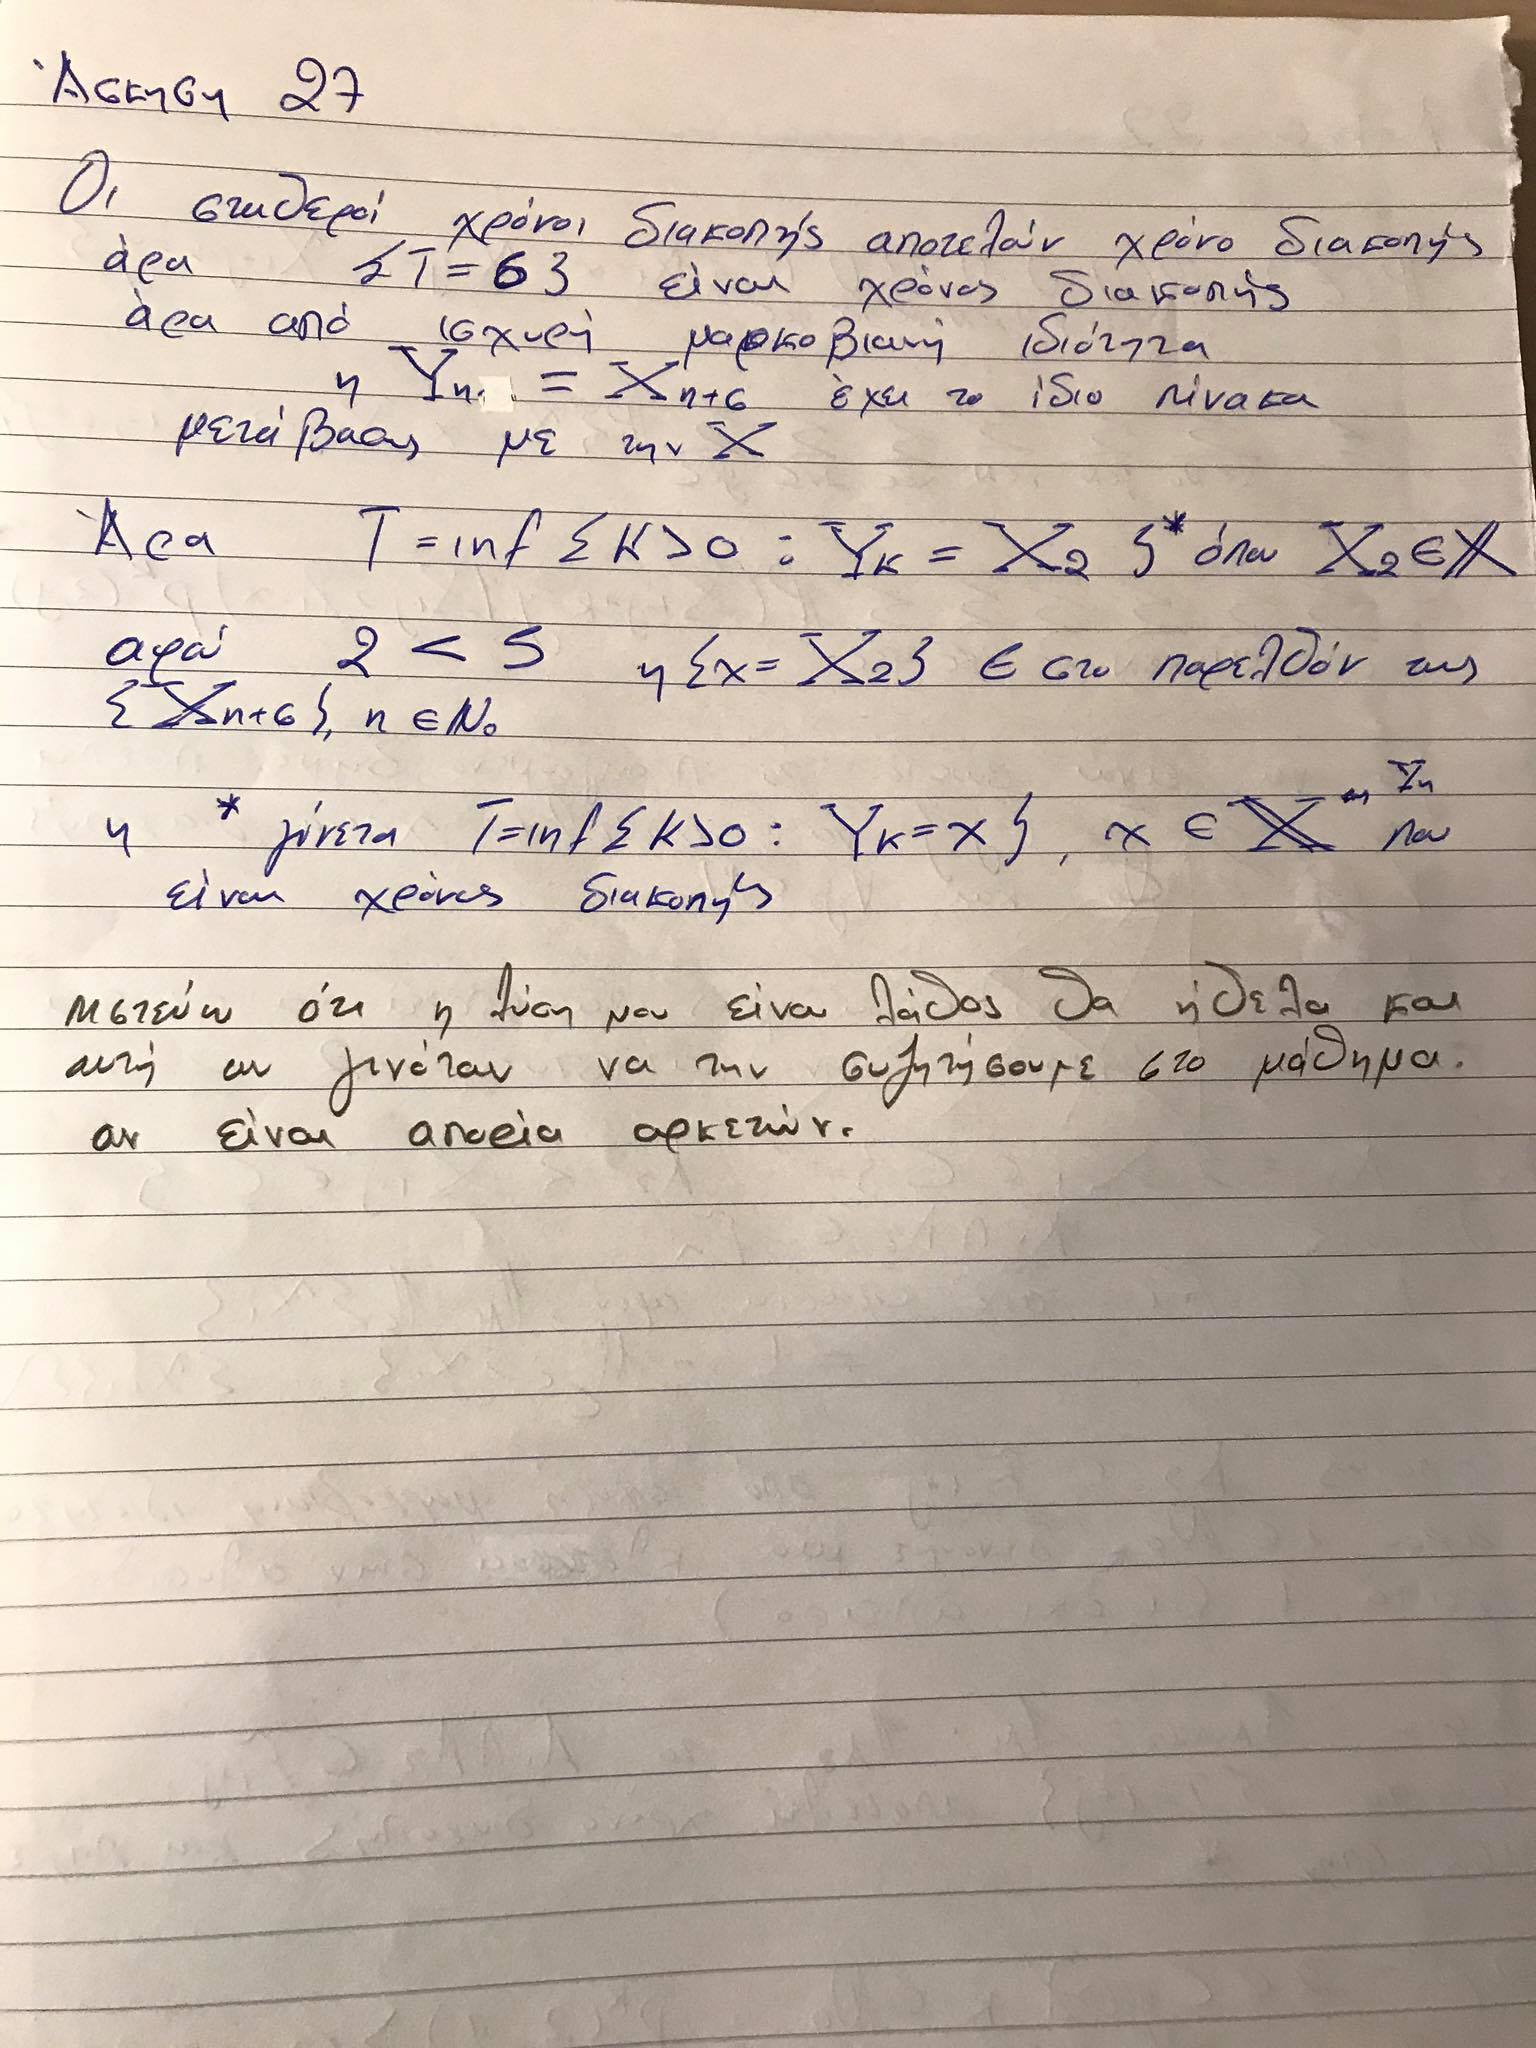 Άσκηση 27
Οι σταθεροί χρόνοι διακοπής αποτελούν χρόνο διακοπής
άρα {T = 6} είναι χρόνος διακοπής
άρα από ισχυρή μαρκοβιανή ιδιότητα
η Yn = Xn+6 έχει το ίδιο πίνακα
μετάβασης με την X
Άρα T = inf {K>0 : YK = X2 }* όπου X2 ∈ 𝕏
αφού 2 < 5 η {x = X2} ∈ στο παρελθόν της
{Xn+6}, n ∈ N0
η * γίνεται T = inf {K>0 : YK = x }, x ∈ 𝕏 Yn που
είναι χρόνος διακοπής
πιστεύω ότι η λύση μου είναι λάθος θα ήθελα και
αυτή αν γινόταν να την συζητήσουμε στο μάθημα.
αν είναι απορία αρκετών.